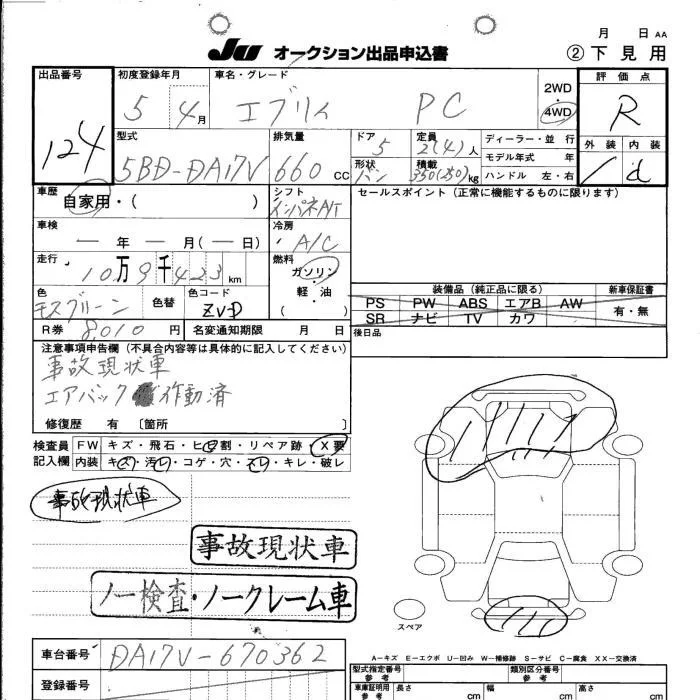 月 日 AA
JU オークション出品申込書 ②下見用
出品番号 初度登録年月 車名・グレード 2WD 評価点
124 5 4月 エブリイ PC 4WD R
型式 排気量 ドア 定員 ディーラー・並 行 外装 内装
5BD-DA17V 660 CC 5 2(4)人 モデル年式 年 / d
形状 積載 ハンドル 左・右
バン 350(250)kg
車歴 シフト セールスポイント (正常に機能するものに限ります)
自家用・( ) インパネA/T
車検 冷房
― 年 ― 月(― 日) A/C
走行 燃料
10万9千423km ガソリン・
軽油・
( )
色 色替 色コード 装備品(純正品に限る) 新車保証書
モスグリーン ZVD PS PW ABS エアB AW 有・無
R券 8,010円 名変通知期限 月 日 SR ナビ TV カワ
後日品
注意事項申告欄(不具合内容等は具体的に記入してください)
事故現状車
エアバック 作動済
修復歴 有 〔箇所 〕
検査員 FW キズ・飛石・ヒビ割・リペア跡・X要
記入欄 内装 キズ・汚レ・コゲ・穴・スレ・キレ・破レ
事故現状車
事故現状車
ノー検査・ノークレーム車
スペア
車台番号 DA17V-670362
登録番号
A-キズ E-エクボ U-凹み W-補修跡 S-サビ C-腐食 XX-交換済
型式指定番号 参考 類別区分番号 参考
車庫証明用 参考 長さ cm 幅 cm 高さ cm